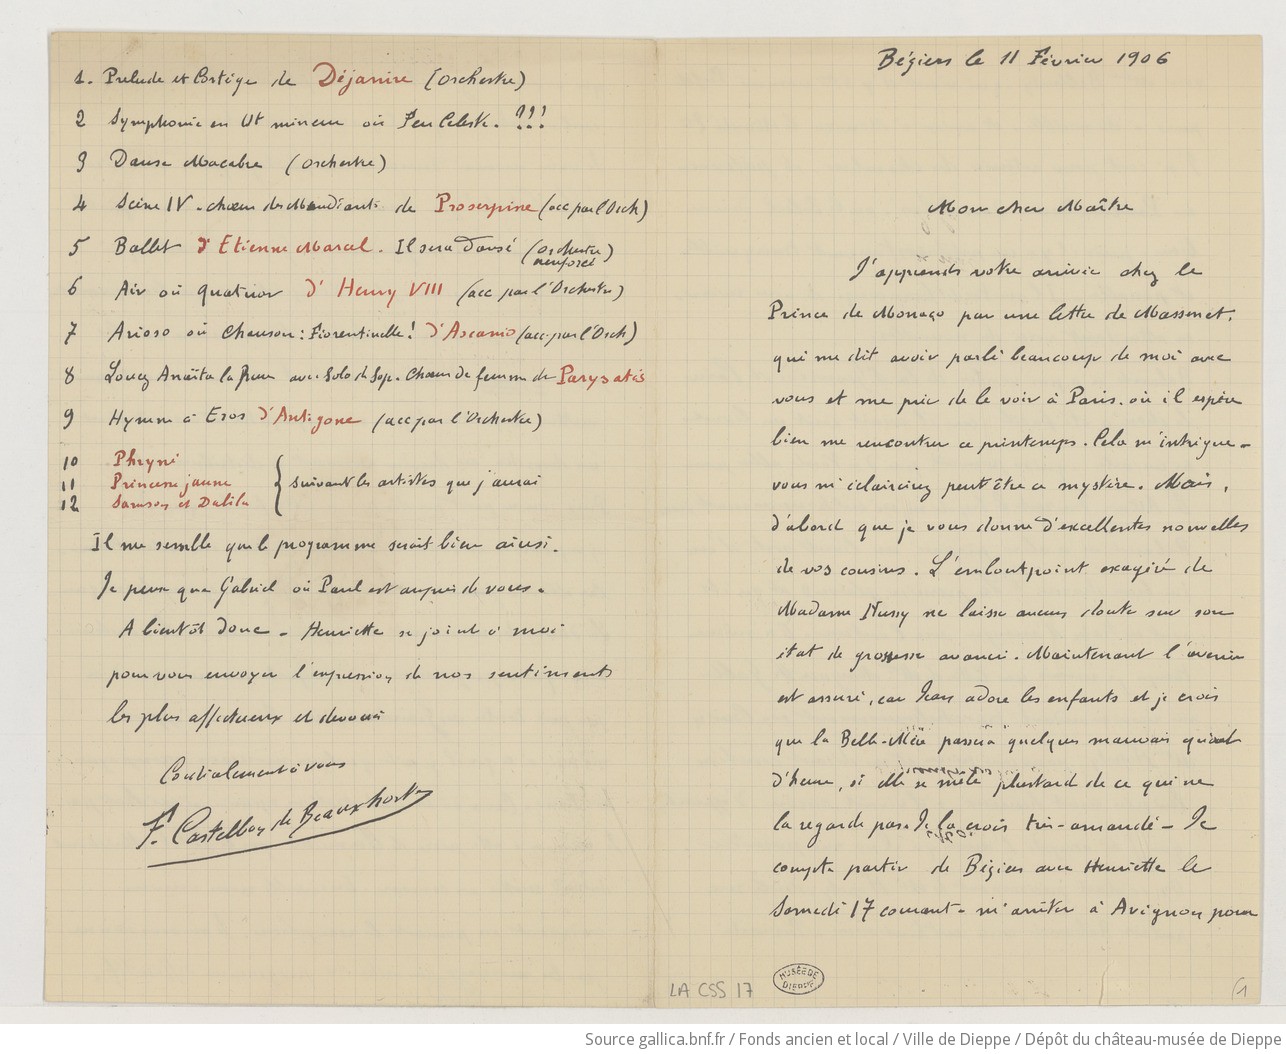 1. Prelude et Cortège de Déjanire (Orchestre)
2 Symphonie en Ut mineur où Feu Celeste. ?!!
3 Danse Macabre (Orchestre)
4 Scène IV - chœur des Mendiants de Proserpine (acc par l'Orch)
5 Ballet d'Etienne Marcel. Il sera Dansé (Orchestre renforcé)
6 Air où Quatuor d'Henry VIII (acc par l'Orchestre)
7 Arioso où Chanson: Fiorentinelle! d'Ascanio (acc. par l'Orch)
8 Louez Anaïta la Pure avec Solo de Sop. Chœur de femmes de Parysatis
9 Hymne à Eros d'Antigone (acc par l'Orchestre)
10 Phryné
11 Princesse jaune
12 Samson et Dalila
suivant les artistes que j'aurai
Il me semble que le programme serait bien ainsi.
Je pense que Gabriel où Paul est auprès de vous.
A bientôt donc - Henriette se joint à moi
pour vous envoyer l'expression de nos sentiments
les plus affectueux et devoués
Cordialement à vous
F. Castelbon de Beauxhostes
Béziers le 11 Février 1906
Mon cher Maître
J'apprends votre arrivée chez le
Prince de Monaco par une lettre de Massenet,
qui me dit avoir parlé beaucoup de moi avec
vous et me prie de le voir à Paris. où il espère
bien me rencontrer ce printemps. Cela m'intrigue -
vous m'éclaircirez peut être ce mystère. Mais,
d'abord que je vous donne d'excellentes nouvelles
de vos cousins. L'embonpoint exagéré de
Madame Nussy ne laisse aucun doute sur son
état de grossesse avancé. Maintenant l'avenir
est assuré, car Jean adore les enfants et je crois
que la Belle-Mère passera quelques mauvais quart
d'heure, si elle se mêle plus tard de ce qui ne
la regarde pas. Je la crois très-amandée - Je
compte partir de Béziers avec Henriette le
Samedi 17 courant - m'arrêter à Avignon pour
LA CSS 17
MUSÉE DE DIEPPE
1
Source gallica.bnf.fr / Fonds ancien et local / Ville de Dieppe / Dépôt du château-musée de Dieppe